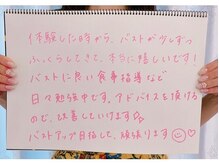 体験した時から、バストが少しずつ
ふっくらしてきて、本当に嬉しいです!
バストに良い食事指導など
日々勉強中です。アドバイスを頂ける
ので、改善していけます
バストアップ目指して、頑張ります